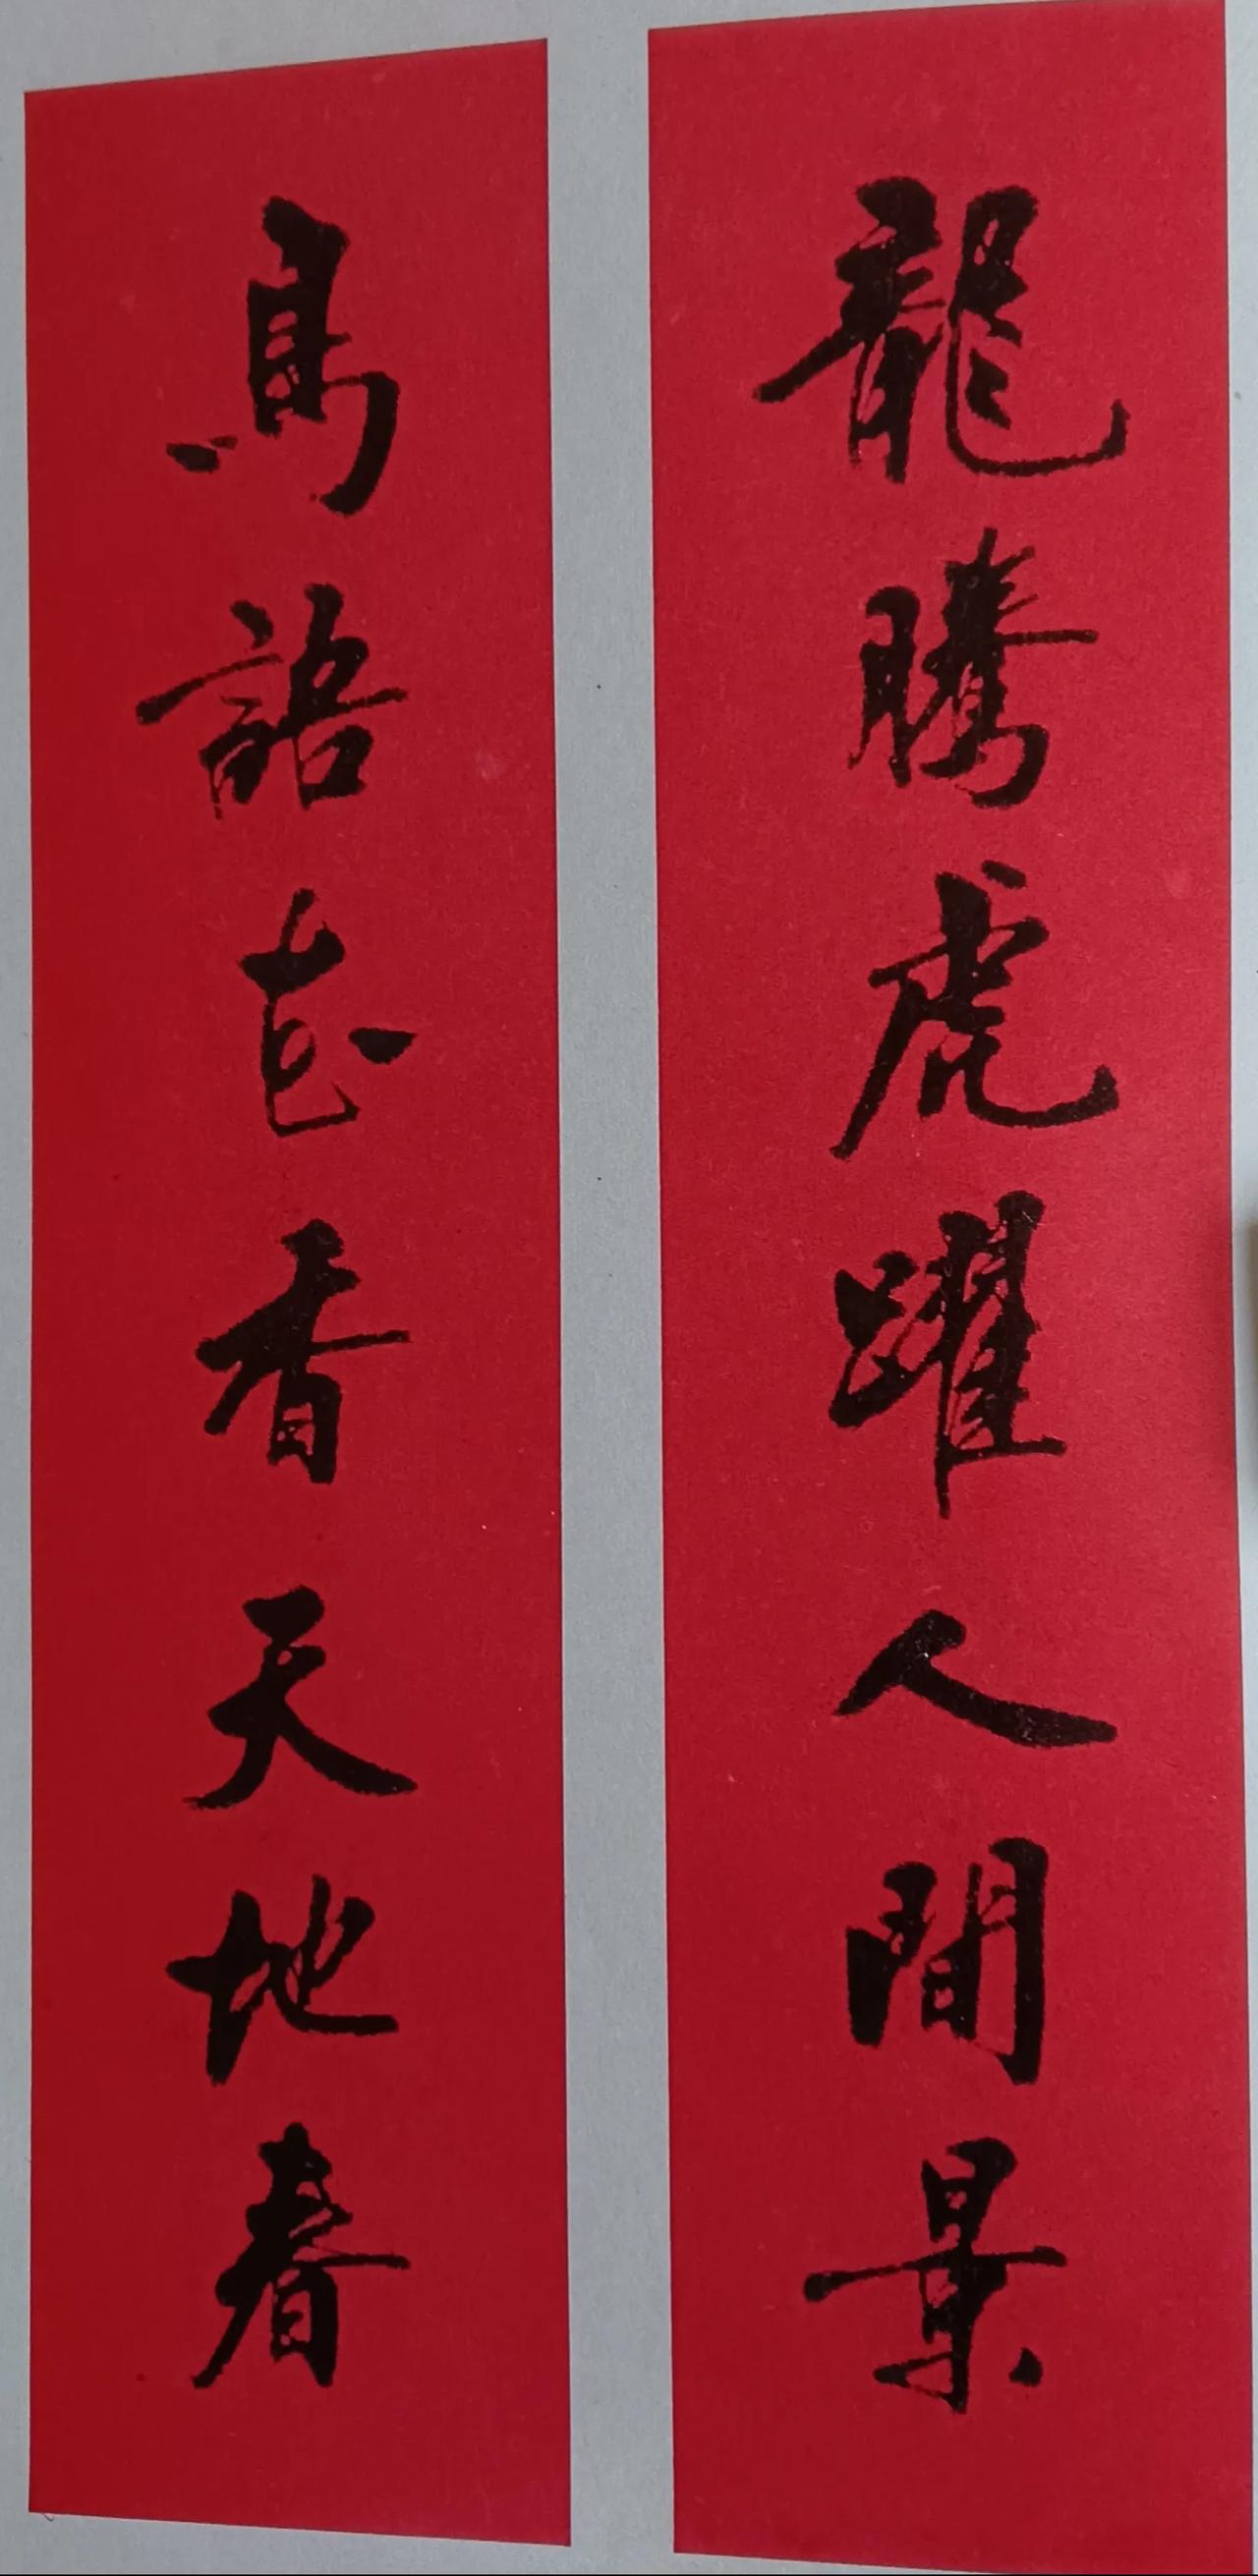 龍騰虎躍人間景
鳥語花香天地春